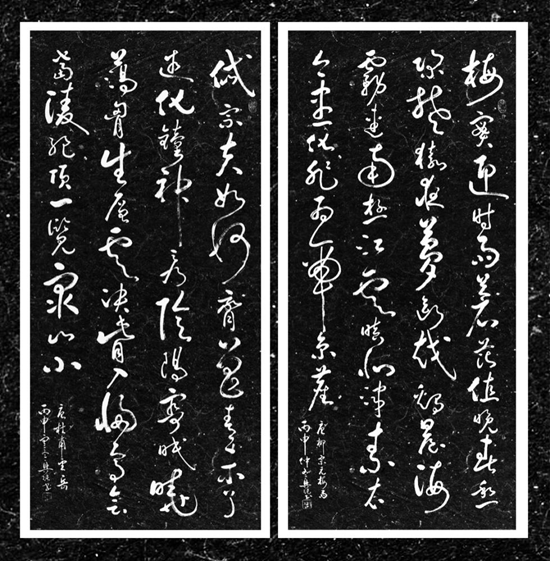 梅實迎時雨蒼茫值晚春愁
深楚猿夜夢斷越雞晨海
霧連南極江雲暗北津素衣
今盡化非為帝京塵
唐柳宗元梅雨
丙申仲
岱宗夫如何齊魯青未了
造化鐘神秀陰陽割昏曉
蕩胸生層雲決眥入歸鳥會
當凌絕頂一覽眾山小
唐杜甫望岳
丙申